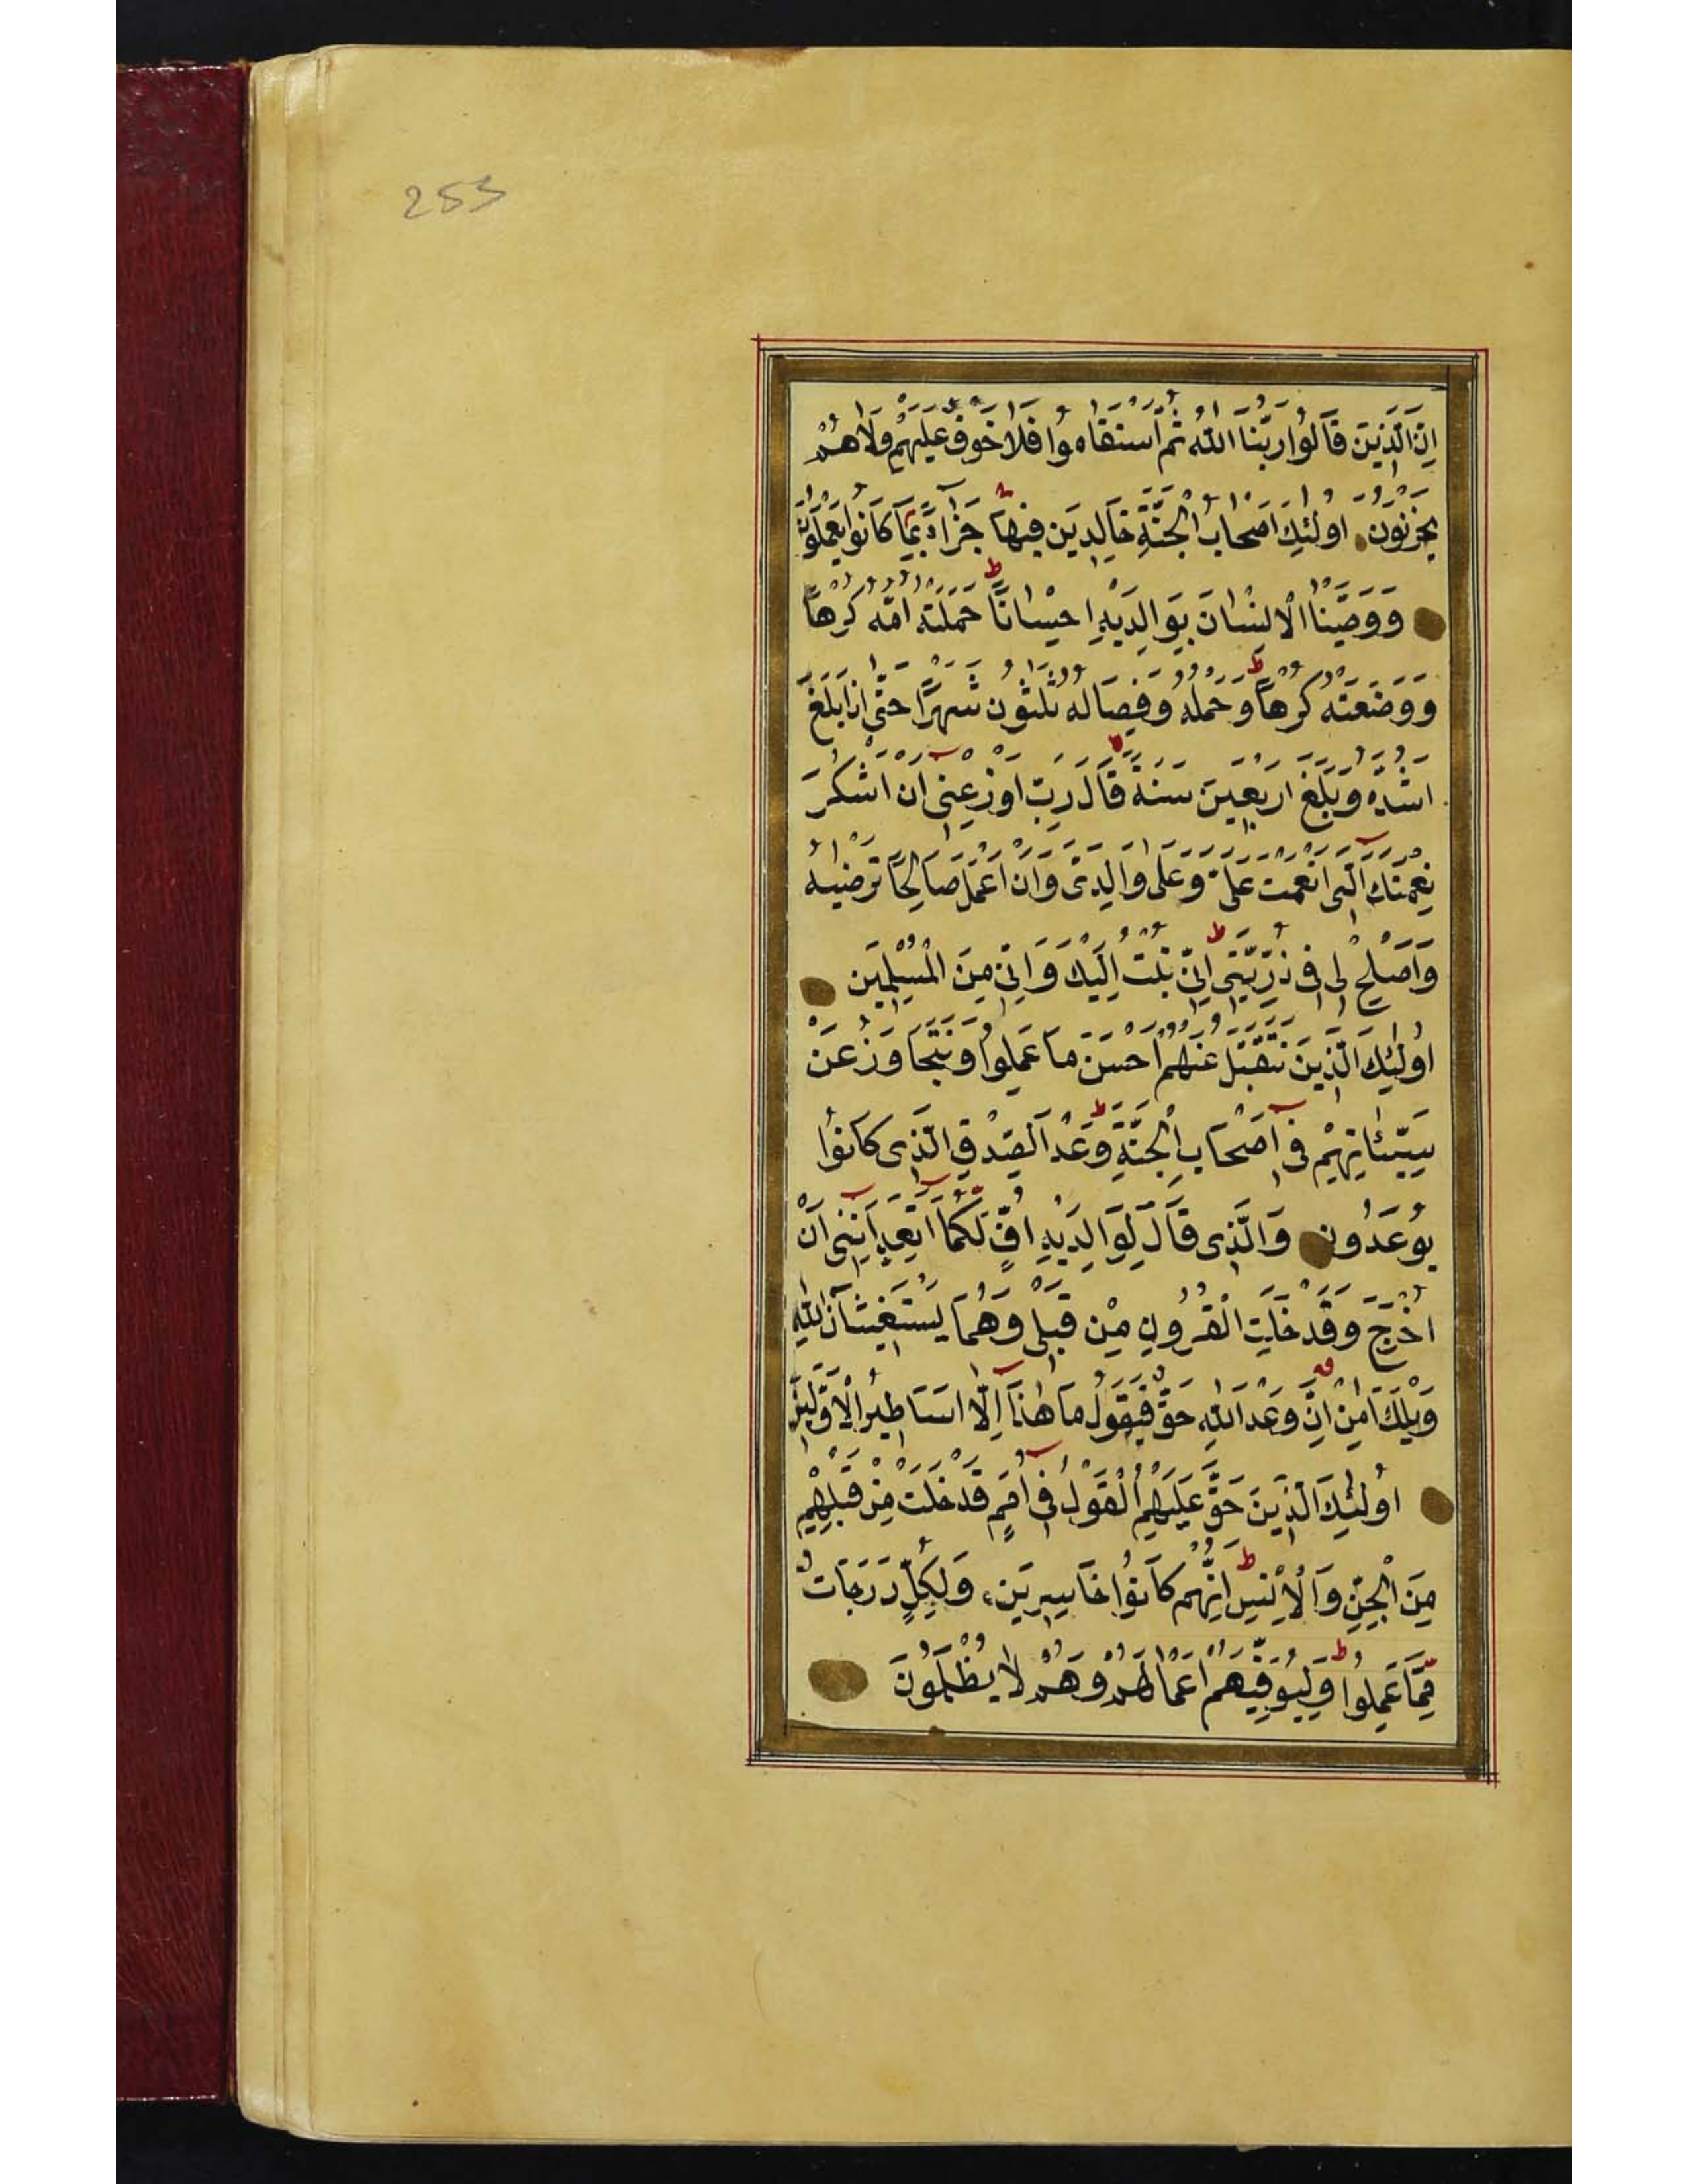 253
اِنَّ الَّذِينَ قَالُوا رَبُّنَا اللّٰهُ ثُمَّ اسْتَقَامُوا فَلَا خَوْفٌ عَلَيْهِمْ وَلَا هُمْ
يَحْزَنُونَ اُولٰئِكَ اَصْحَابُ الْجَنَّةِ خَالِدِينَ فِيهَا جَزَآءً بِمَا كَانُوا يَعْمَلُونَ
وَوَصَّيْنَا الْاِنْسَانَ بِوَالِدَيْهِ اِحْسَانًا ط حَمَلَتْهُ اُمُّهُ كُرْهًا
وَوَضَعَتْهُ كُرْهًا ط وَحَمْلُهُ وَفِصَالُهُ ثَلٰثُونَ شَهْرًا حَتّٰى اِذَا بَلَغَ
اَشُدَّهُ وَبَلَغَ اَرْبَعِينَ سَنَةً قَالَ رَبِّ اَوْزِعْنِى اَنْ اَشْكُرَ
نِعْمَتَكَ الَّتِى اَنْعَمْتَ عَلَىَّ وَعَلٰى وَالِدَىَّ وَاَنْ اَعْمَلَ صَالِحًا تَرْضٰيهُ
وَاَصْلِحْ لِى فِى ذُرِّيَّتِى ط اِنِّى تُبْتُ اِلَيْكَ وَاِنِّى مِنَ الْمُسْلِمِينَ
اُولٰئِكَ الَّذِينَ نَتَقَبَّلُ عَنْهُمْ اَحْسَنَ مَا عَمِلُوا وَنَتَجَاوَزُ عَنْ
سَيِّئَاتِهِمْ فِى اَصْحَابِ الْجَنَّةِ ط وَعْدَ الصِّدْقِ الَّذِى كَانُوا
يُوعَدُونَ وَالَّذِى قَالَ لِوَالِدَيْهِ اُفٍّ لَكُمَا اَتَعِدَانِنِى اَنْ
اُخْرَجَ وَقَدْ خَلَتِ الْقُرُونِ مِنْ قَبْلِى وَهُمَا يَسْتَغِيثَانِ اللّٰهَ
وَيْلَكَ اٰمِنْ اِنَّ وَعْدَ اللّٰهِ حَقٌّ فَيَقُولُ مَا هٰذَا اِلَّا اَسَاطِيرُ الْاَوَّلِينَ
اُولٰئِكَ الَّذِينَ حَقَّ عَلَيْهِمُ الْقَوْلُ فِى اُمَمٍ قَدْ خَلَتْ مِنْ قَبْلِهِمْ
مِنَ الْجِنِّ وَالْاِنْسِ ط اِنَّهُمْ كَانُوا خَاسِرِينَ وَلِكُلٍّ دَرَجَاتٌ
مِمَّا عَمِلُوا ط وَلِيُوَفِّيَهُمْ اَعْمَالَهُمْ وَهُمْ لَا يُظْلَمُونَ